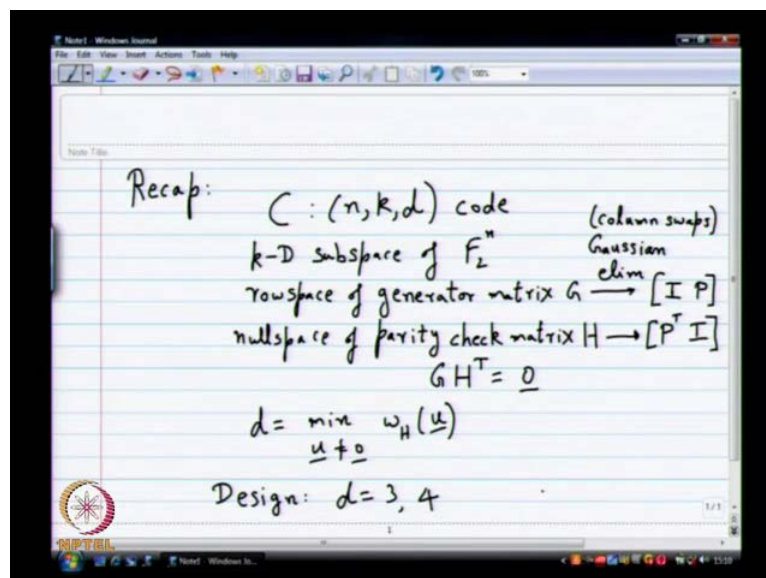 Note1 - Windows Journal
File Edit View Insert Actions Tools Help
100%
Note Title
Recap:
C : (n, k, d) code
(column swaps)
k-D subspace of F₂ⁿ
Gaussian elim
rowspace of generator matrix G → [I P]
nullspace of parity check matrix H → [Pᵀ I]
GHᵀ = 0
d = min w_H(u)
u ≠ 0
Design: d = 3, 4
1/1
1
NPTEL
Note1 - Windows Jo...
15:10